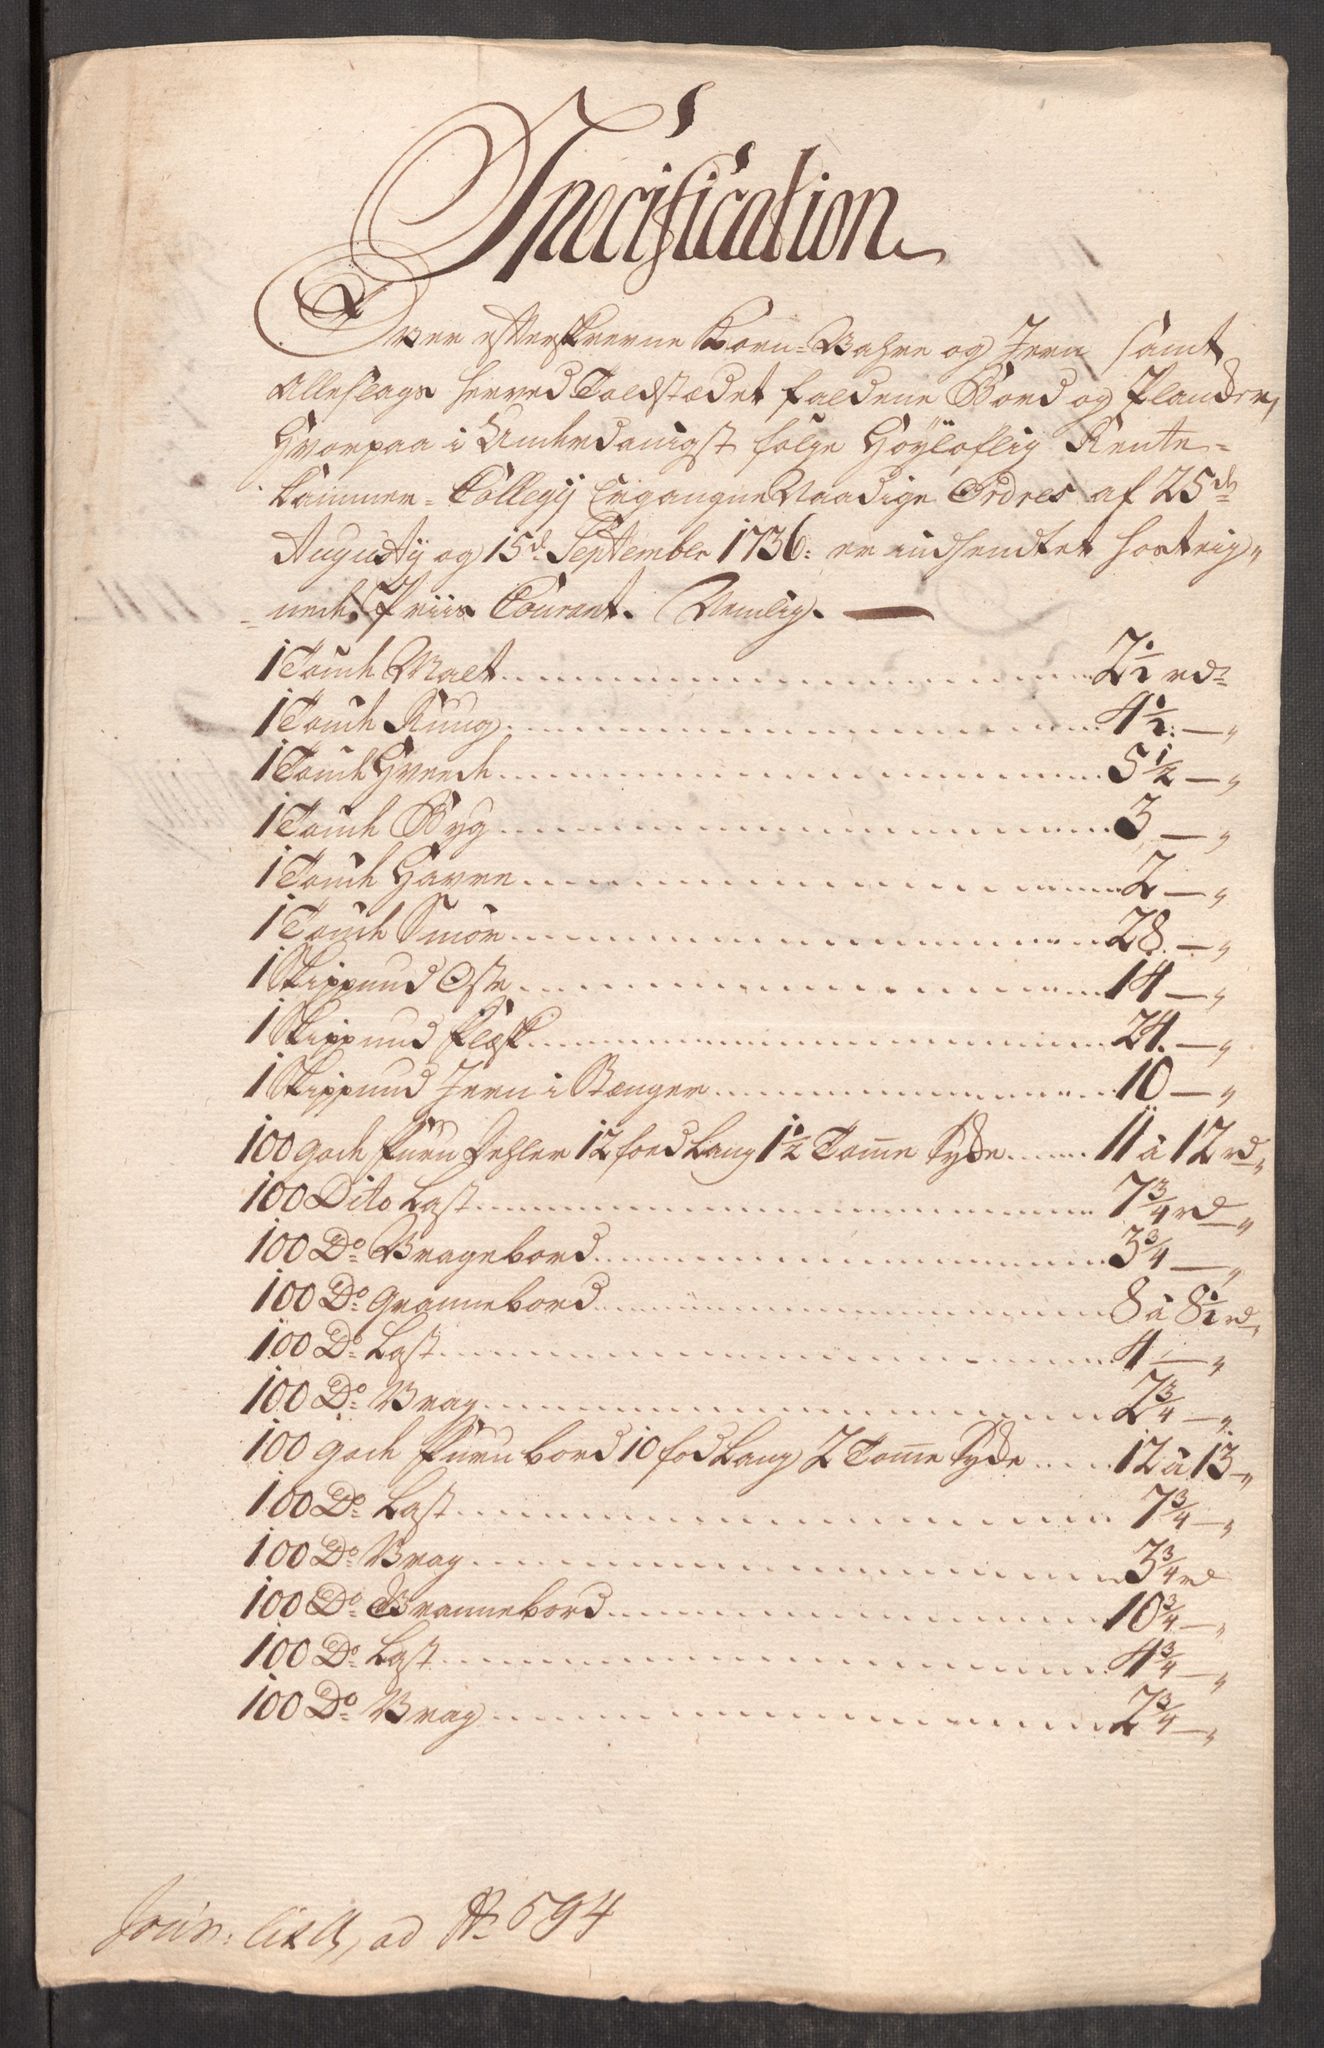 Specification
Over efterskrevne Korn-Vahre og Jern samt
Alleslags herved Toldstædet faldene Bord og Plancker,
Hvorpaa i Underdanigst følge Høyloflig Rente-
Cammer-Collegij Ergangne Naadige Ordres af 25de
Augusty og 15de September 1736: er indsendter hosteig-
nede Priis Courant. Nemlig.
1 Tønde Malt 2 1/2 rd
1 Tønde Rug 4 1/2 — „
1 Tønde Hvede 5 1/2 — „
1 Tønde Byg 3 — „
1 Tønde Havre 2 — „
1 Tønde Smør 28 — „
1 Skippund Oste 14 — „
1 Skippund Flæsk 24 — „
1 Skippund Jern i Stænger 10 — „
100 gode Furu Dehler 12 foed Lang 1 1/2 Tomme Tyde 11 à 12 rd „
100 Dito Last 7 3/4 rd „
100 Do Vragebord 3 3/4 — „
100 Do Grannebord 8 à 8 1/2 rd „
100 Do Last 4 — „
100 Do Vrag 2 3/4 — „
100 gode Furu bord 10 fod Lang 2 Tomme Tyde 12 à 13 „
100 Do Last 7 3/4 — „
100 Do Vrag 3 3/4 rd
100 Do Grannebord 10 3/4 — „
100 Do Last 4 3/4 — „
100 Do Vrag 2 3/4 — „
Jour: Lit ad No 594